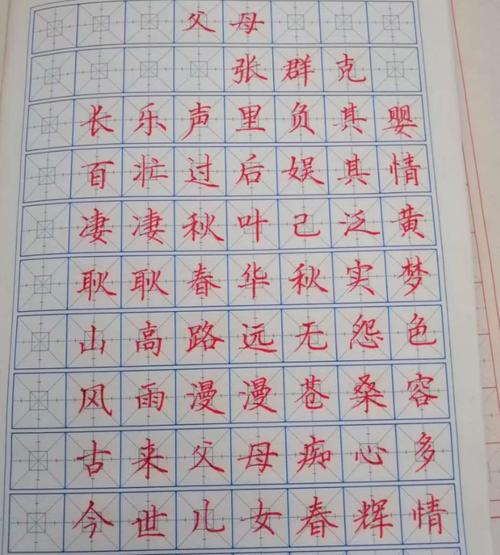 父母
张群克
长乐声里负其婴
百忙过后娱其情
凄凄秋叶已泛黄
耿耿春华秋实梦
山高路远无怨色
风雨漫漫苍桑容
古来父母痴心多
今世儿女春辉情